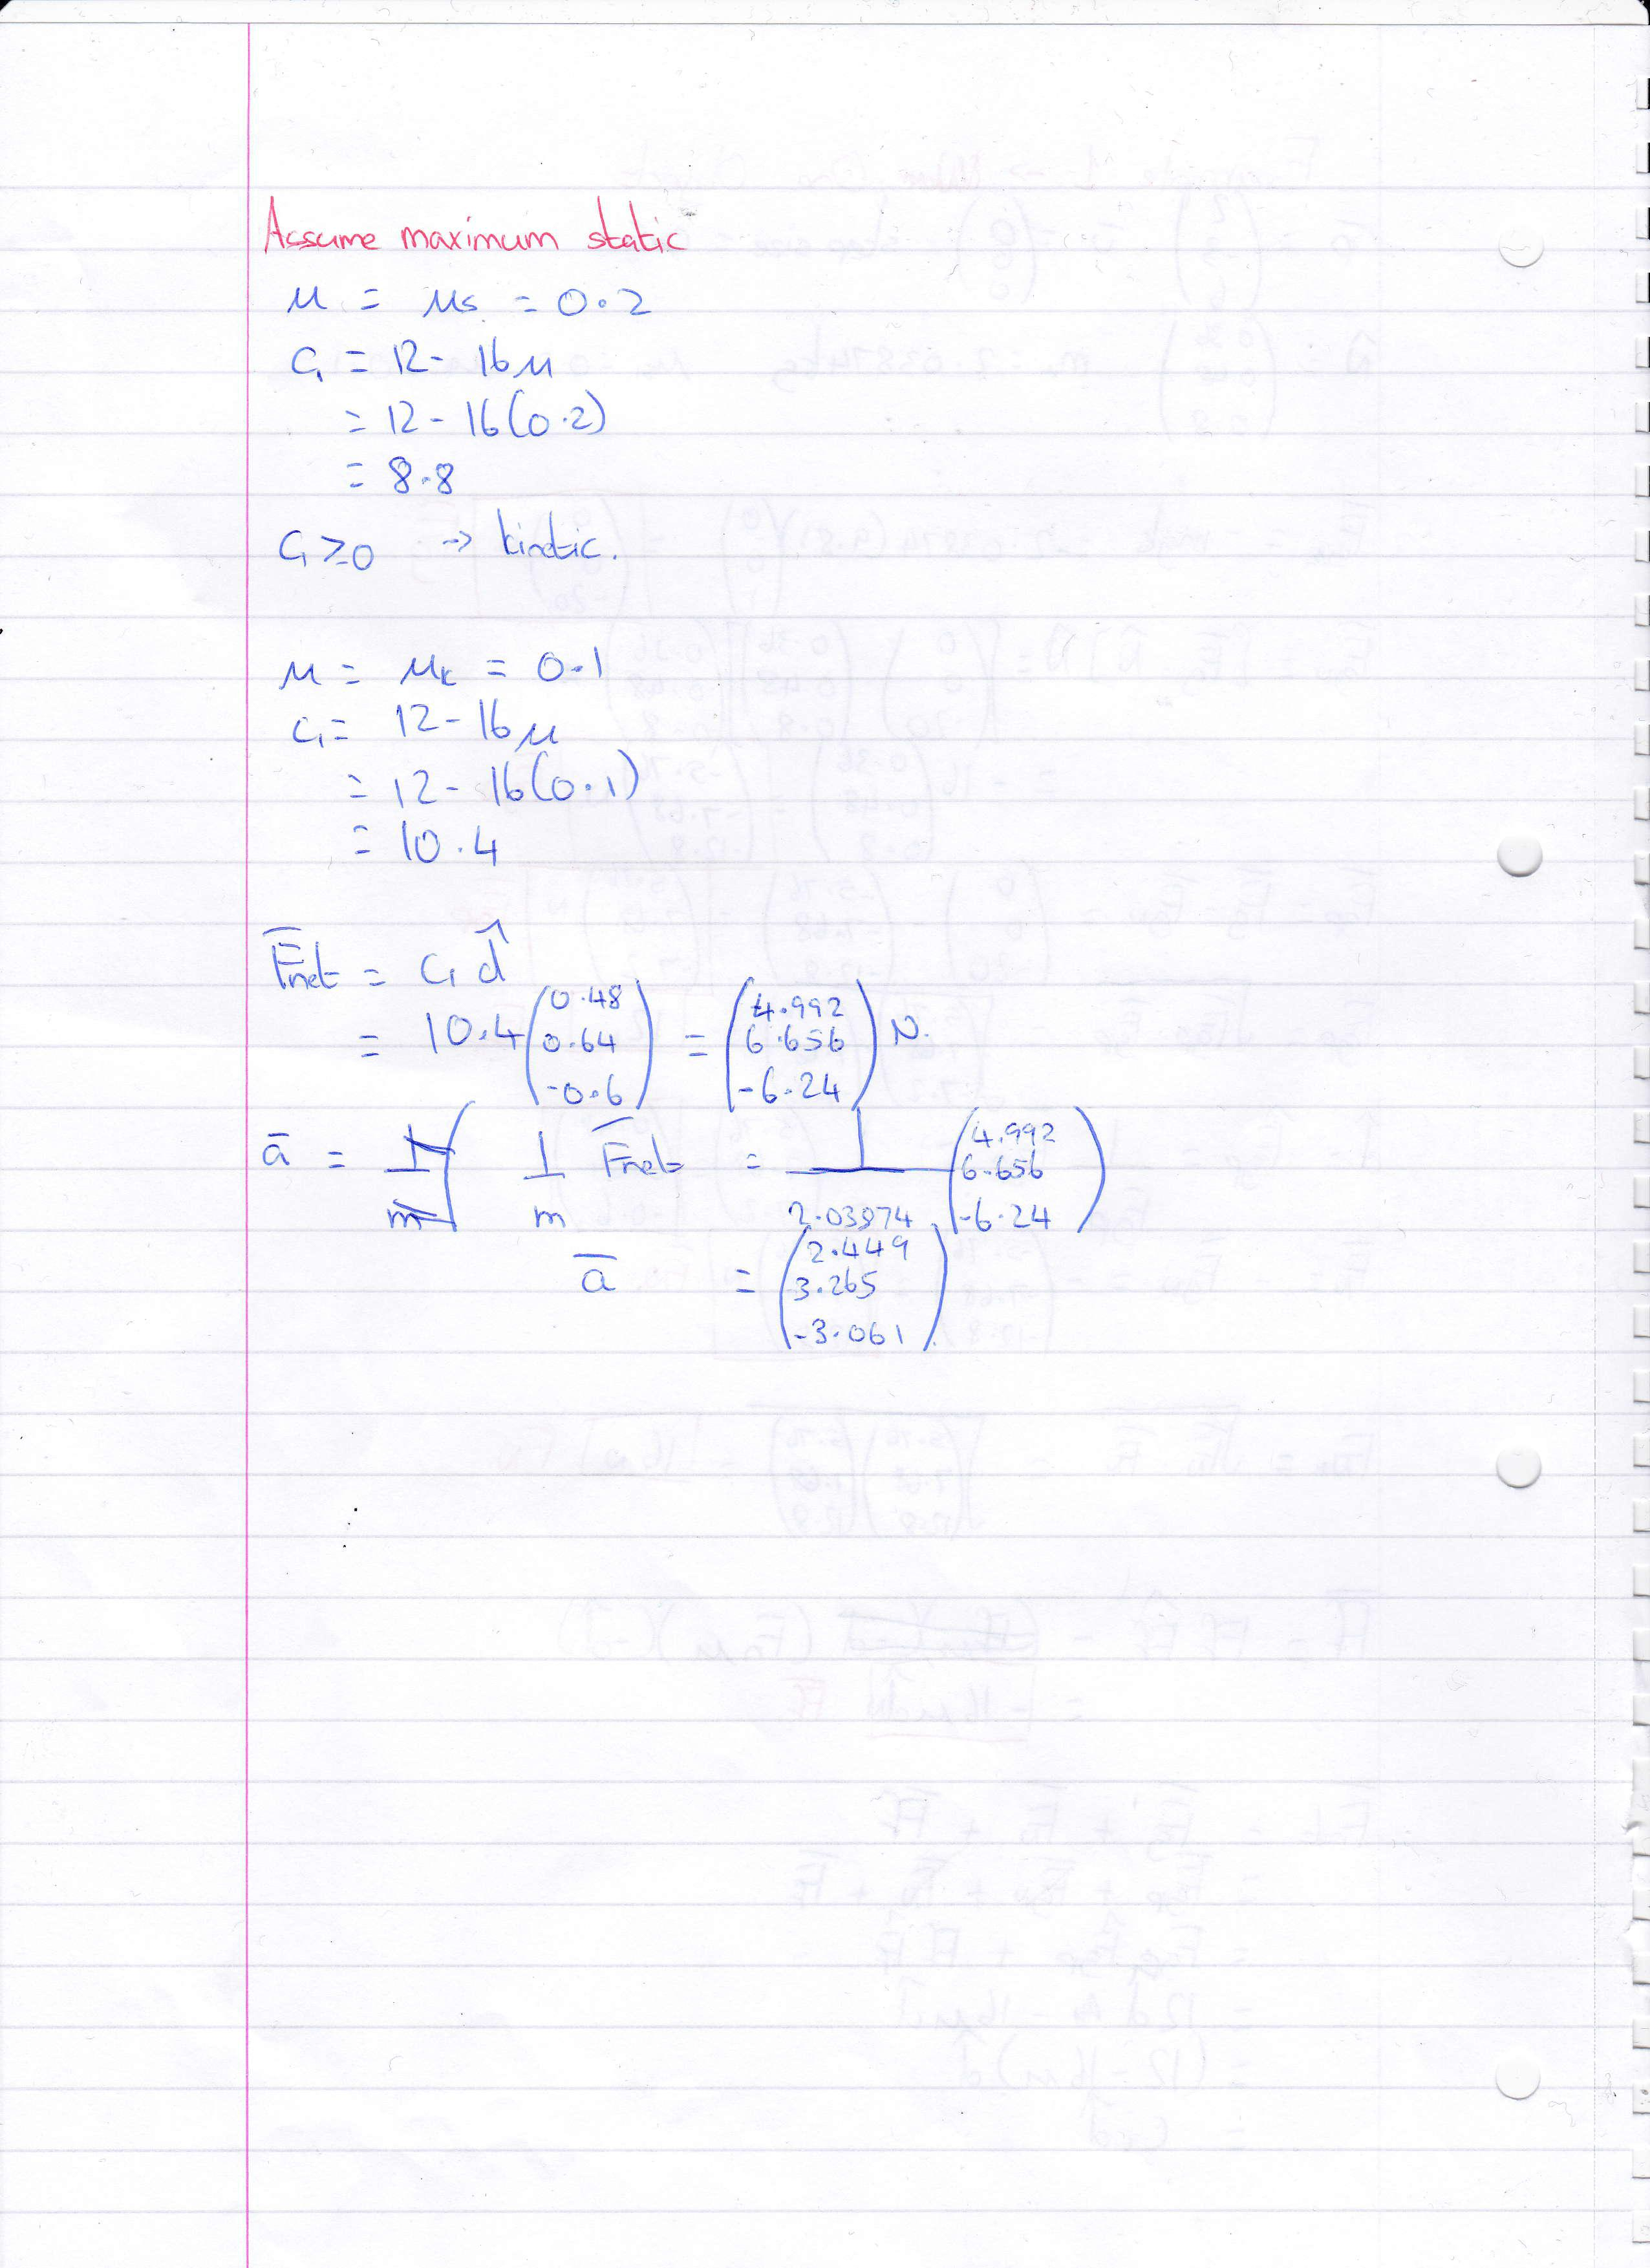 Assume maximum static
μ = μs = 0.2
C₁ = 12 - 16μ
= 12 - 16(0.2)
= 8.8
C₁ ≥ 0 → kinetic.
μ = μk = 0.1
C₁ = 12 - 16μ
= 12 - 16(0.1)
= 10.4
F̅net = C₁ d̂
= 10.4 (0.48 0.64 -0.6) = (4.992 6.656 -6.24) N.
a̅ = 1/m F̅net = 1/2.03874 (4.992 6.656 -6.24)
a̅ = (2.449 3.265 -3.061)